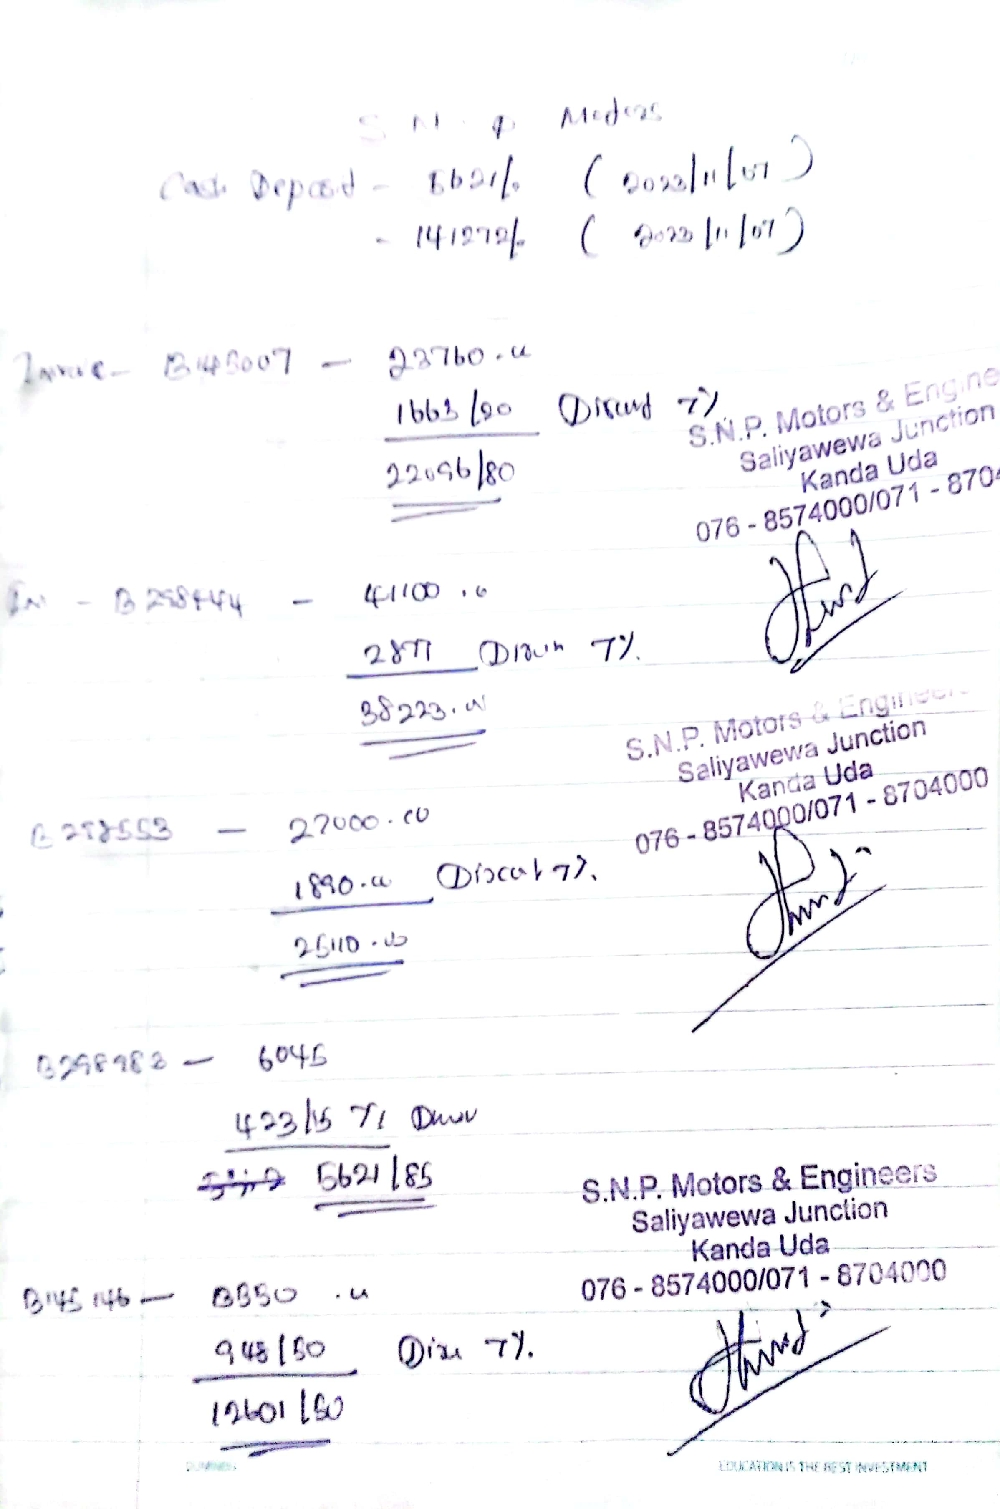 S.N.P Motors
Cash Deposit - 5621/. (2023/11/07)
- 141272/. (2023/11/07)
Invoice - B145007 - 23760.00
1663/20 Discund 7%
22096/80
S.N.P. Motors & Engine
Saliyawewa Junction
Kanda Uda
076 - 8574000/071 - 8704
In - B 298444 - 41100.00
2877 Discun 7%.
38223.00
S.N.P. Motors & Engineers
Saliyawewa Junction
Kanda Uda
076 - 8574000/071 - 8704000
B 298553 - 27000.00
1890.00 Discut 7%.
25110.00
B298983 - 6045
423/15 7%
5621/85
S.N.P. Motors & Engineers
Saliyawewa Junction
Kanda Uda
076 - 8574000/071 - 8704000
B145146 - 13550.00
948/50 Disu 7%.
12601/50
EDUCATION IS THE BEST INVESTMENT